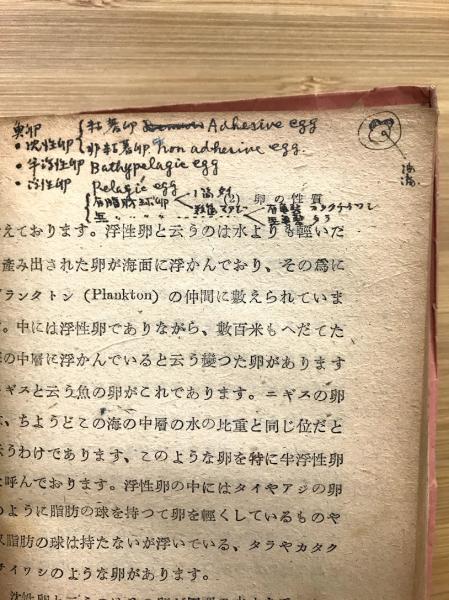 魚卵
・沈性卵 粘着卵 Adhesive egg
非粘着卵 non adhesive egg.
・半浮性卵 Bathypelagic egg
・浮性卵 Pelagic egg
有脂肪球卵 1滴 タイ
油滴
(2) 卵の性質
えております。浮性卵と云うのは水よりも輕いた
産み出された卵が海面に浮かんでおり、その爲に
プランクトン (Plankton) の仲間に數えられていま
。中には浮性卵でありながら、數百米もへだてた
の中層に浮かんでいると云う變つた卵があります
ギスと云う魚の卵がこれであります。ニギスの卵
、ちようどこの海の中層の水の比重と同じ位だと
うわけであります、このような卵を特に半浮性卵
呼んでおります。浮性卵の中にはタイやアジの卵
のように脂肪の球を持つて卵を輕くしているものや
脂肪の球は持たないが浮いている、タラやカタク
チイワシのような卵があります。